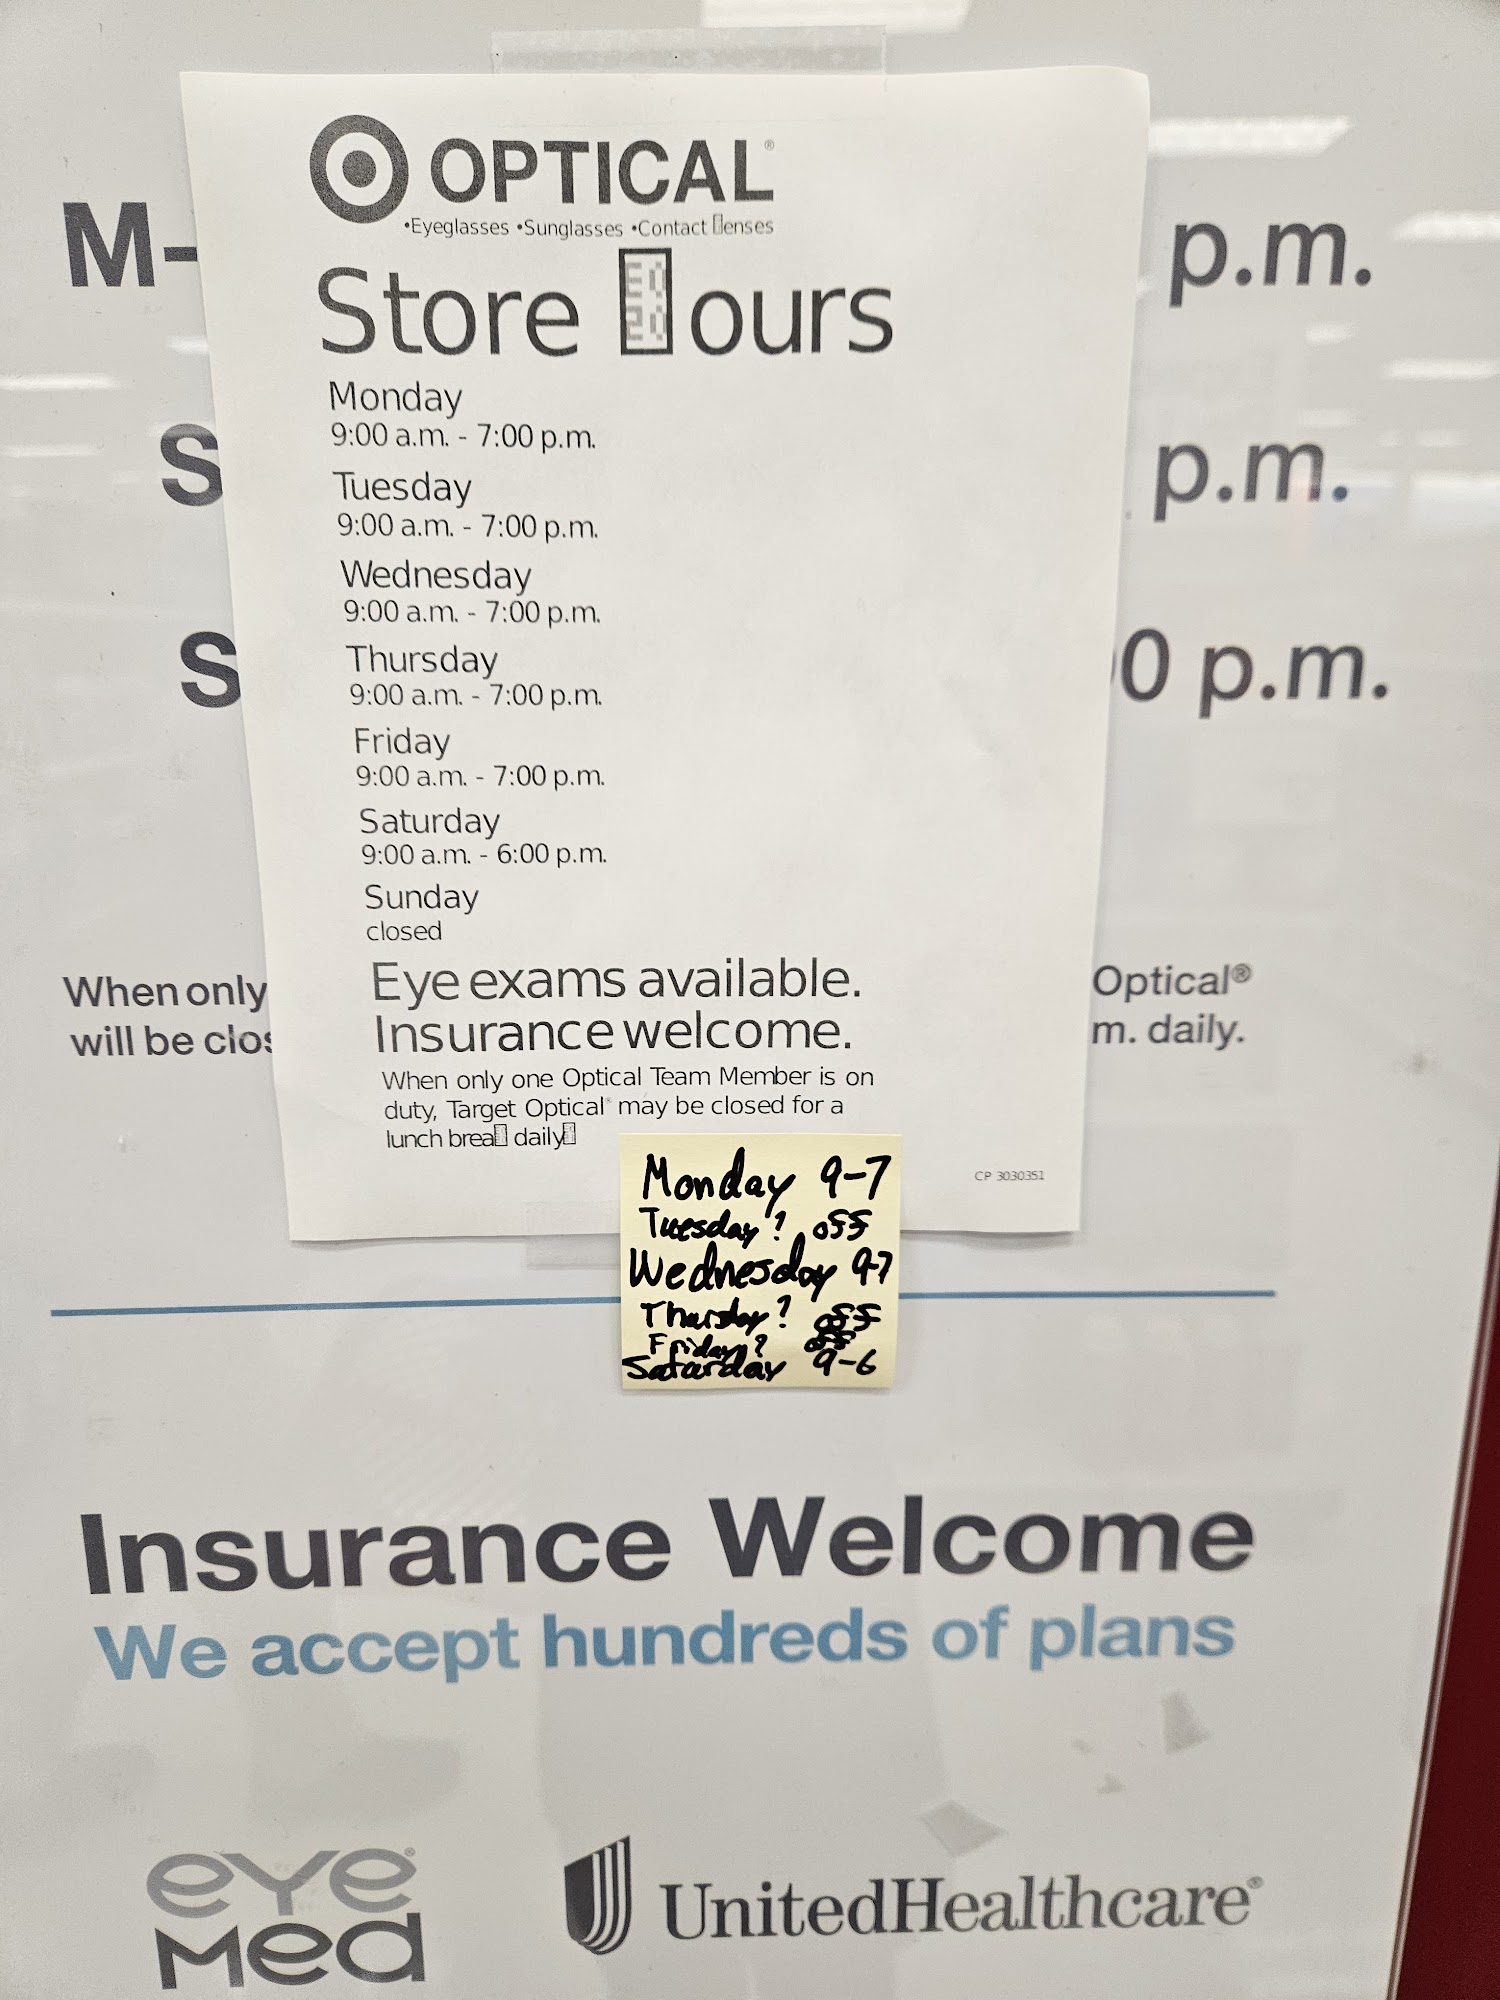 OPTICAL®
•Eyeglasses •Sunglasses •Contact enses
Store ours
Monday
9:00 a.m. - 7:00 p.m.
Tuesday
9:00 a.m. - 7:00 p.m.
Wednesday
9:00 a.m. - 7:00 p.m.
Thursday
9:00 a.m. - 7:00 p.m.
Friday
9:00 a.m. - 7:00 p.m.
Saturday
9:00 a.m. - 6:00 p.m.
Sunday
closed
Eye exams available.
Insurance welcome.
When only one Optical Team Member is on
duty, Target Optical® may be closed for a
lunch brea daily
CP 3030351
Monday 9-7
Tuesday? off
Wednesday 9-7
Thursday? off
Friday? off
Saturday 9-6
M- p.m.
S p.m.
S 0 p.m.
When only Optical®
will be clos m. daily.
Insurance Welcome
We accept hundreds of plans
eye
Med
UnitedHealthcare®